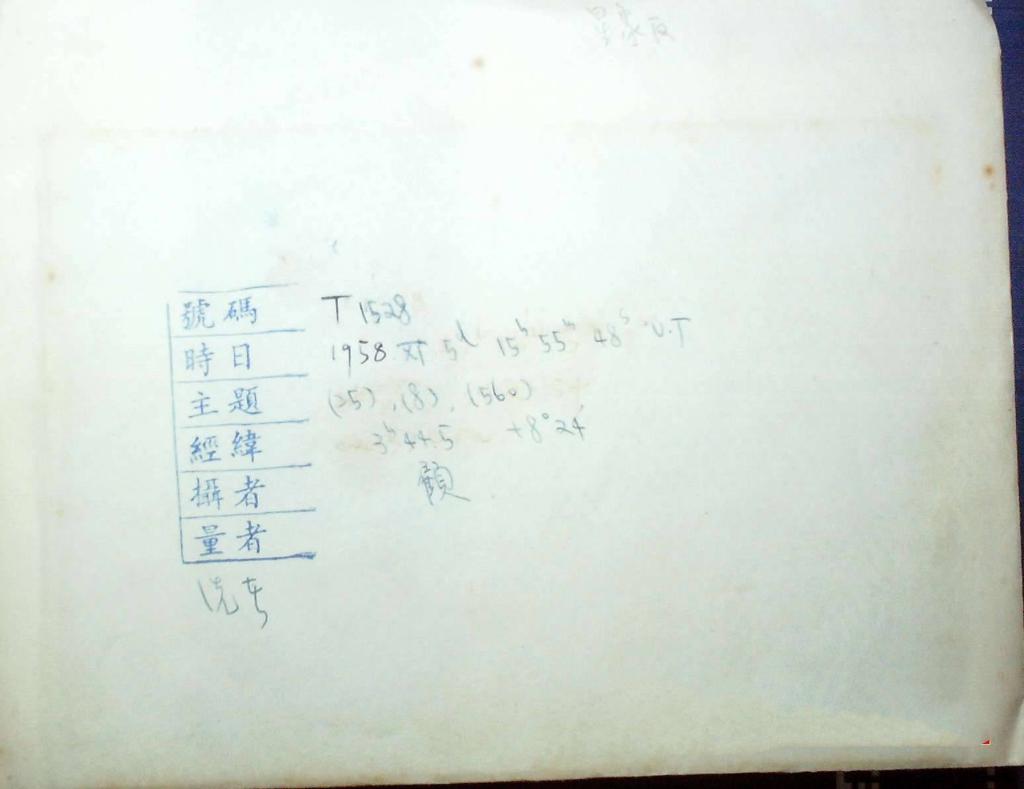 號碼 T 1528
時日 1958 XI 5d 15h 55m 48s U.T
主題 (25), (8), (560)
經緯 3h 44.5 +8° 24'
攝者 顧
量者
洗者